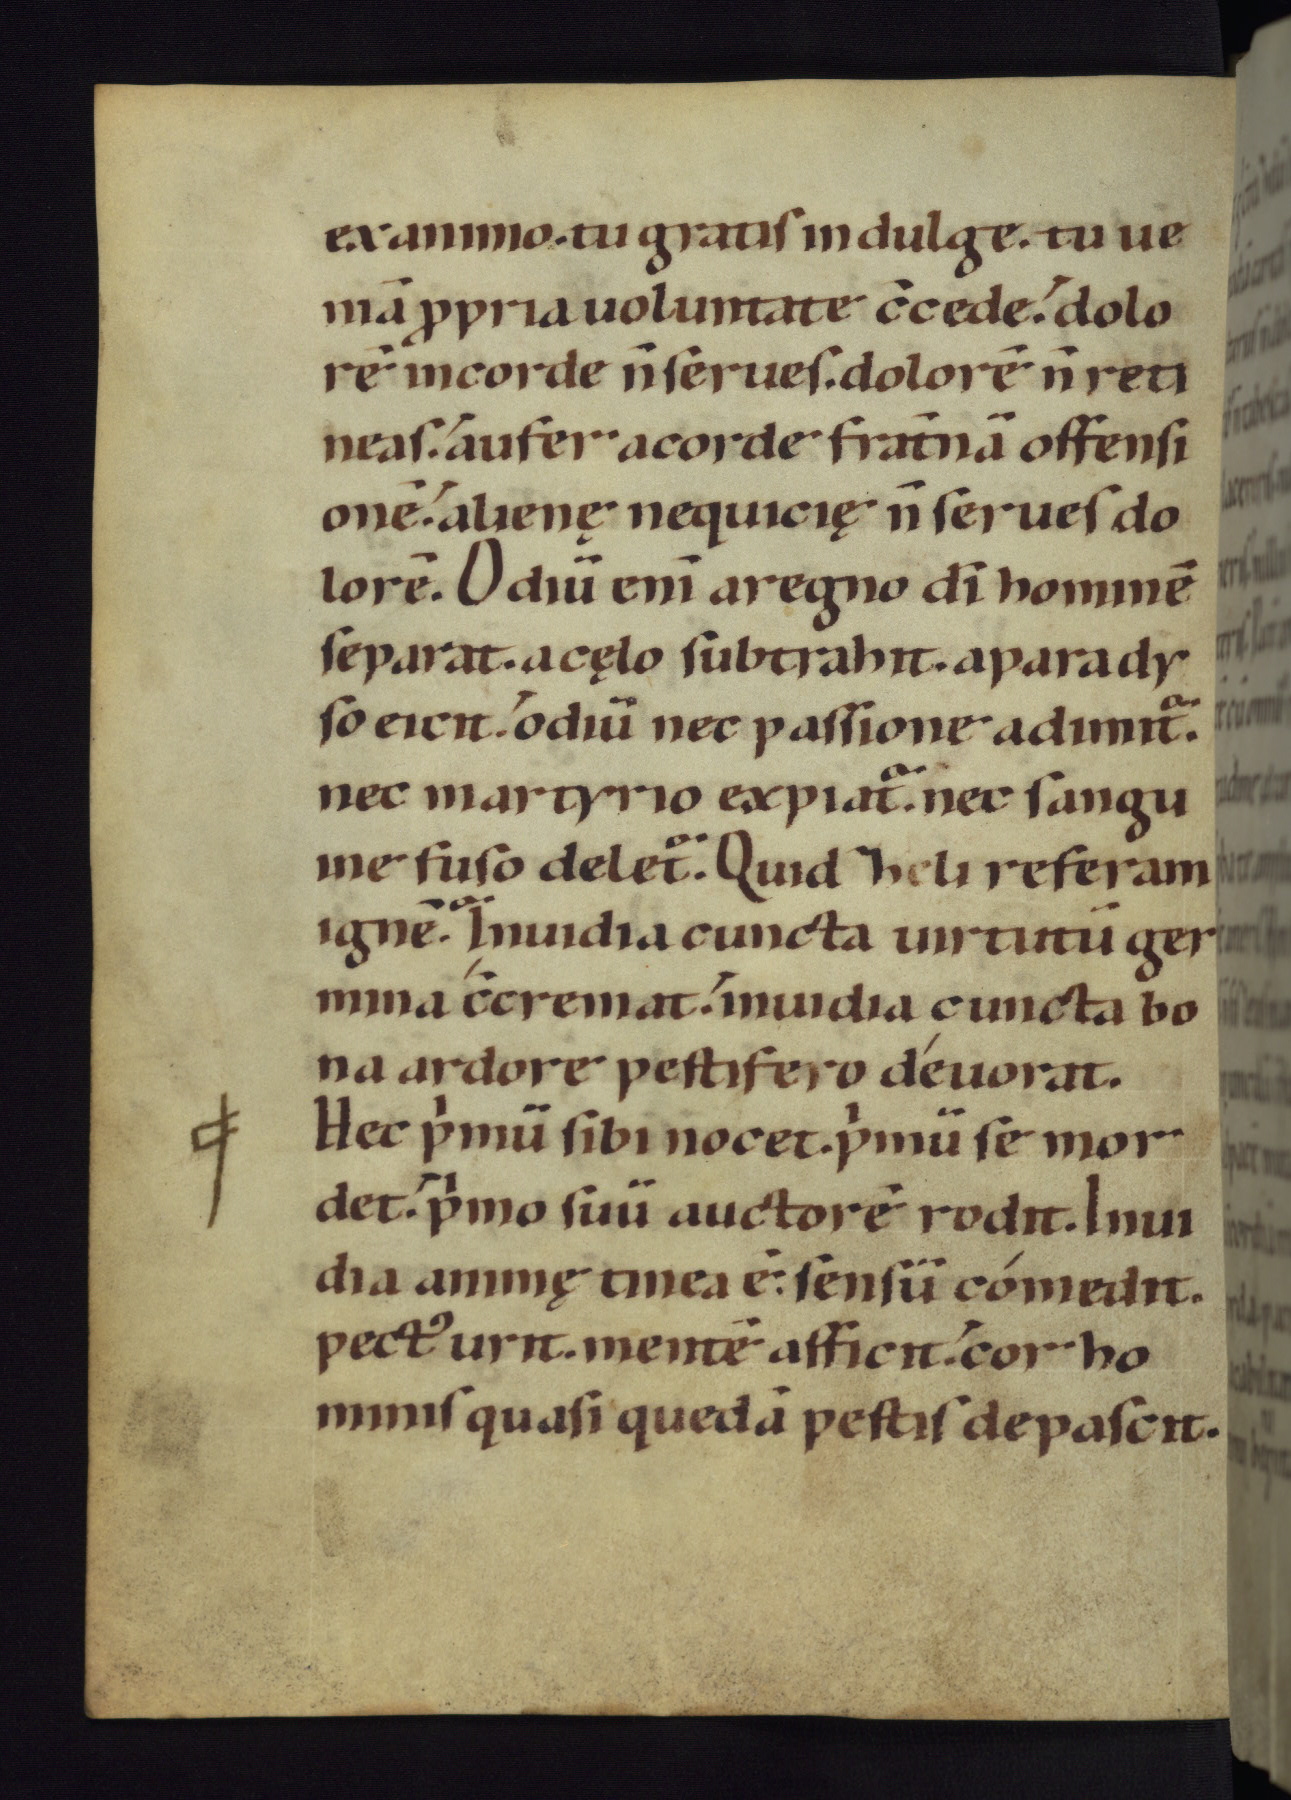 ex animo. tu gratis indulge. tu ue
niā ꝓpria uoluntate c̄cede. dolo
rē in corde n̄ serues. dolorē n̄ reti
neas. aufer a corde frat̄nā offensi
onē. alienę nequicię n̄ serues do
lorē. Odiū enī a regno dī hominē
separat. a cęlo subtrahit. a parady
so eicit. odiū nec passione adimit᷑.
nec martyrio expiat᷑. nec sangu
ine fuso delet᷑. Quid heli referam
ignē. Inuidia cuncta uirtutū ger
mina c̄cremat. inuidia cuncta bo
na ardore pestifero déuorat.
Hec pͥmū sibi nocet. pͥmū se mor
det. pͥmo suū auctorē rodit. Inui
dia animę tinea ē. sensū cómedit.
pectꝰ urit. mentē afficit. cor ho
minis quasi quedā pestis depascit.